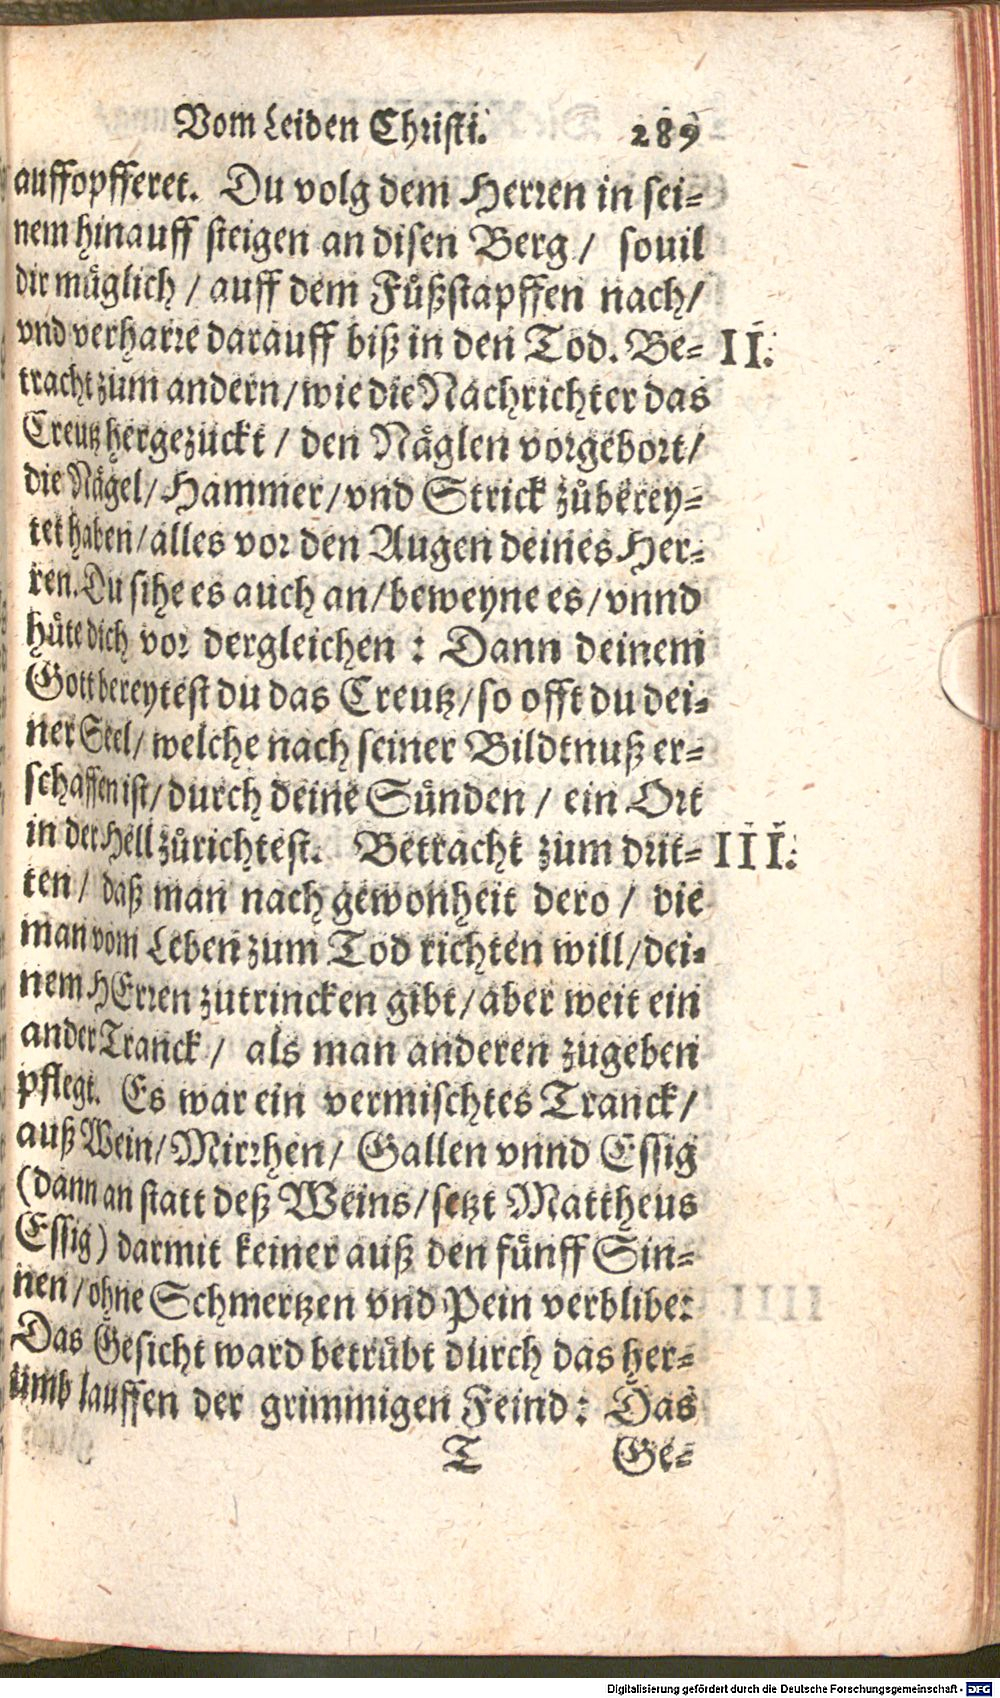 Vom Leiden Christi. 289
auffopfferet. Du volg dem Herren in sei-
nem hinauff steigen an disen Berg / souil
dir müglich / auff dem Fůßstapffen nach/
vnd verharre darauff biß in den Tod. Be- II.
tracht zum andern/wie die Nachrichter das
Creutz hergezuckt / den Näglen vorgebort/
die Nägel/Hammer/vnd Strick zůberey-
tet haben/alles vor den Augen deines Her-
ren. Du sihe es auch an/beweyne es/vnnd
hüte dich vor dergleichen : Dann deinem
Gott bereytest du das Creutz/so offt du dei-
ner Seel/welche nach seiner Bildtnuß er-
schaffen ist/durch deine Sünden / ein Ort
in der Hell zůrichtest. Betracht zum drit- III.
ten / daß man nach gewonheit dero / die
man vom Leben zum Tod richten will/dei-
nem HErren zutrincken gibt/aber weit ein
ander Tranck / als man anderen zugeben
pflegt. Es war ein vermischtes Tranck/
auß Wein/Mirrhen/ Gallen vnnd Essig
(dann an statt deß Weins/setzt Mattheus
Essig) darmit keiner auß den fünff Sin-
nen/ohne Schmertzen vnd Pein verblibe:
Das Gesicht ward betrübt durch das her-
umb lauffen der grimmigen Feind : Das
T Ge-
Digitalisierung gefördert durch die Deutsche Forschungsgemeinschaft - DFG